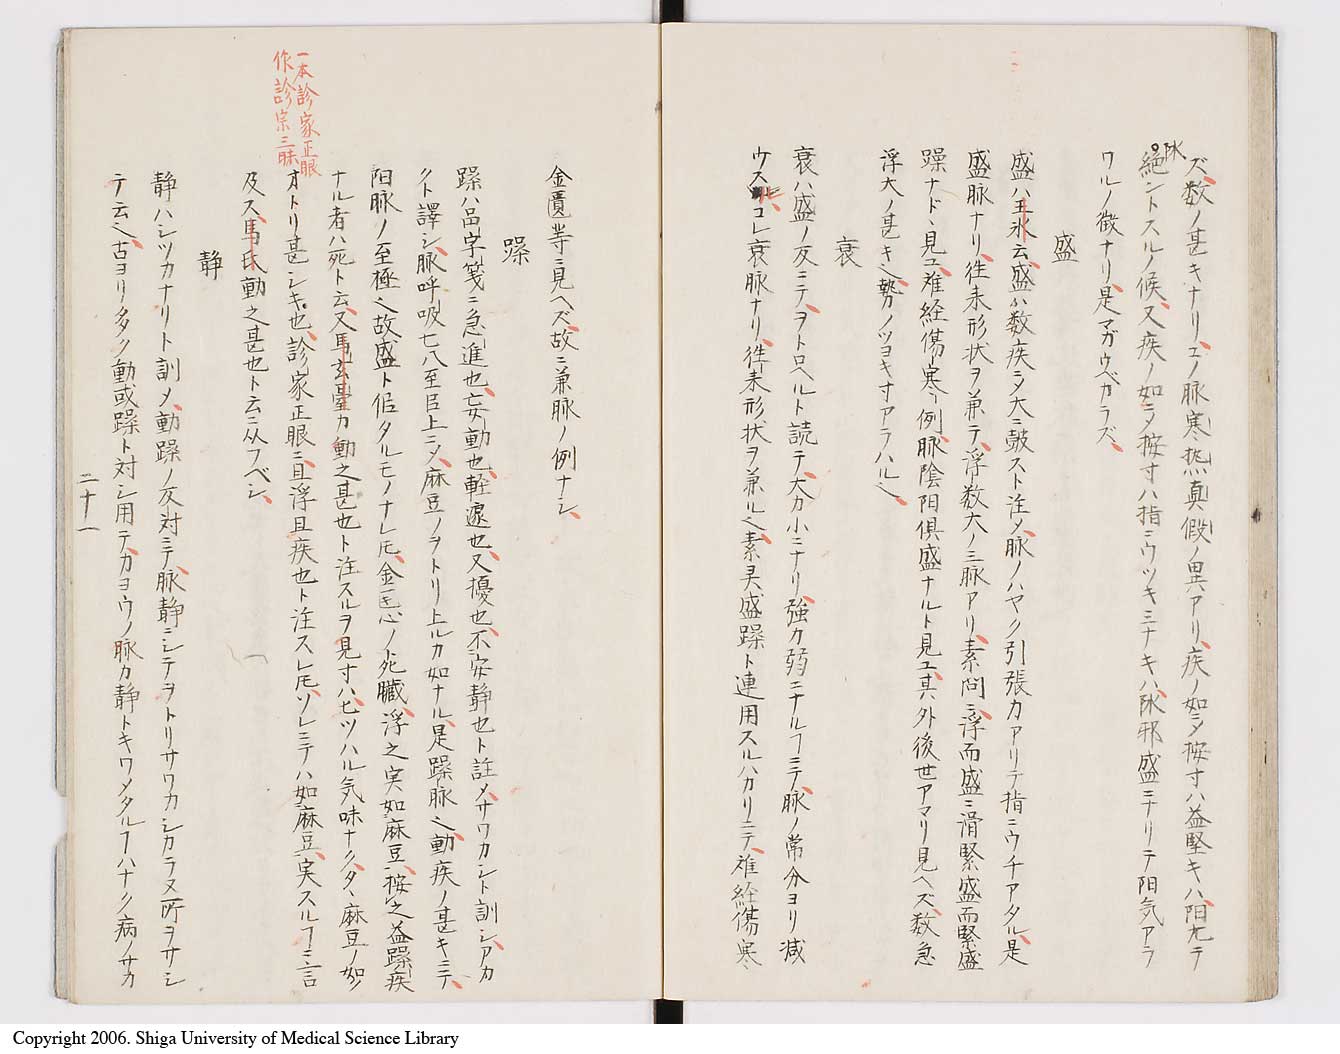 ズ、数ノ甚キナリ、ユノ脉寒热真假ノ異アリ、疾ノ如シ按寸ハ益堅キハ、阳亢テ
脉絶ントスルノ候、又疾ノ如ラ按寸ハ指ニウツキミナキハ、陰邪盛ニナリテ阳気アラ
ワルノ徴ナリ、是マガウベカラズ、
盛
盛ハ王氷云、盛ハ数疾シメ大ニ皷スト注メ、脉ノハヤク引張力アリテ指ニウチアタル、是
盛脉ナリ、徃来形状ヲ兼テ、浮数大ノ三脉アリ、素問ニ浮而盛ニ滑緊盛而緊盛
躁ナド、見ユ、难経傷寒例、脉陰阳俱盛ナルト見エ、其外後世アマリ見ヘズ、数急
浮大ノ甚キ也、勢ノツヨキ寸アラハル也、
衰
衰ハ盛ノ反ニテ、ヲトロヘルト読テ、大カ小ニナリ、強カ弱ニナルヿニテ、脉ノ常分ヨリ减
ウスル、コレ衰脉ナリ、徃来形状ヲ兼ル也、素灵盛躁ト連用スルハカリニテ、难経傷寒
金匱等ニ見ヘズ、故ニ兼脉ノ例ナシ、
躁
躁ハ品字箋ニ急進也、妄動也、軽遽也、又擾也、不安静也ト註メ、サワカシト訓シ、アカ
クト譯シ、脉呼吸七八至㠯上ニメ、麻豆ノヲトリ上ルカ如ナル、是躁脉也、動疾ノ甚キニテ、
阳脉ノ至極也、故盛ト佀タルモノナレ𪜈、金匱心ノ死臓、浮之実如麻豆、按之益躁疾
ナル者ハ死ト云、又馬玄臺カ動之甚也ト注スルヲ見寸ハ、七ツハル気味ナク、タ、麻豆ノ如ク
オトリ甚シキ也、診家正眼ニ、且浮且疾也ト注スレ𪜈、ソレニテハ如麻豆、実スルヿニ言
及ス、馬氏動之甚也ト云ニ从フベシ、
静
静ハシツカナリト訓メ、動躁ノ反対ニテ、脉静ニシテヲトリサワカシカラヌ所ヲサシ
テノ云也、古ヨリ多ク動或躁ト対シ用テ、カヨウノ脉カ静トキワメタルヿハナク、病ノサカ
二十一
一本診家正眼
作診宗三昧
Copyright 2006. Shiga University of Medical Science Library